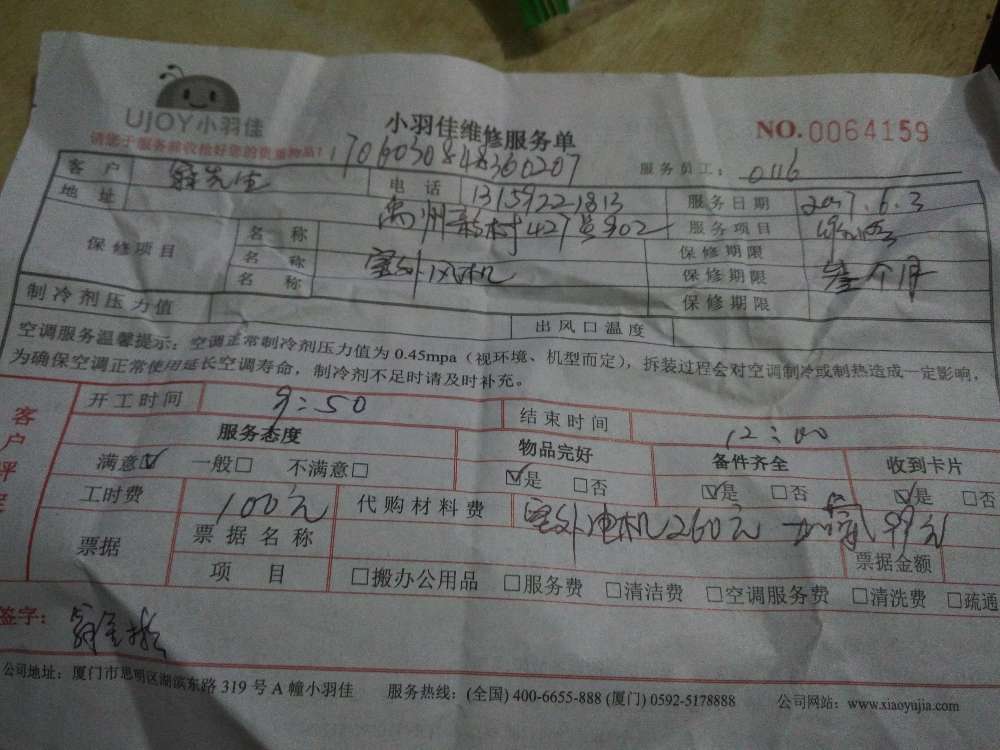 UJOY小羽佳
小羽佳维修服务单
NO.0064159
请您于服务前收拾好您的贵重物品!
17060308448360207
服务员工: 0116
客户 先生 电话 13159221813 服务日期 2017.6.3
地址 州新村427号902 服务项目
保修项目 名称 保修期限
名称 室外风机 保修期限 壹个月
名称 保修期限
制冷剂压力值 出风口温度
空调服务温馨提示:空调正常制冷剂压力值为0.45mpa(视环境、机型而定),拆装过程会对空调制冷或制热造成一定影响,
为确保空调正常使用延长空调寿命,制冷剂不足时请及时补充。
客户评
开工时间 9:50 结束时间 12:00
服务态度 物品完好 备件齐全 收到卡片
满意☑ 一般□ 不满意□ ☑是 □否 ☑是 □否 ☑是 □否
工时费 100元 代购材料费 室外电机260元 加氟99元
票据 票据名称 票据金额
项目 □搬办公用品 □服务费 □清洁费 □空调服务费 □清洗费 □疏通
签字:
公司地址:厦门市思明区湖滨东路319号A幢小羽佳 服务热线:(全国)400-6655-888(厦门)0592-5178888 公司网站:www.xiaoyujia.com